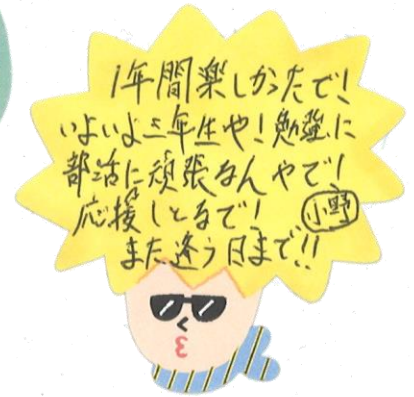 1年間楽しかったで!
いよいよ三年生や!勉強に
部活に頑張なんやで!
応援しとるで! 小野
また逢う日まで!!